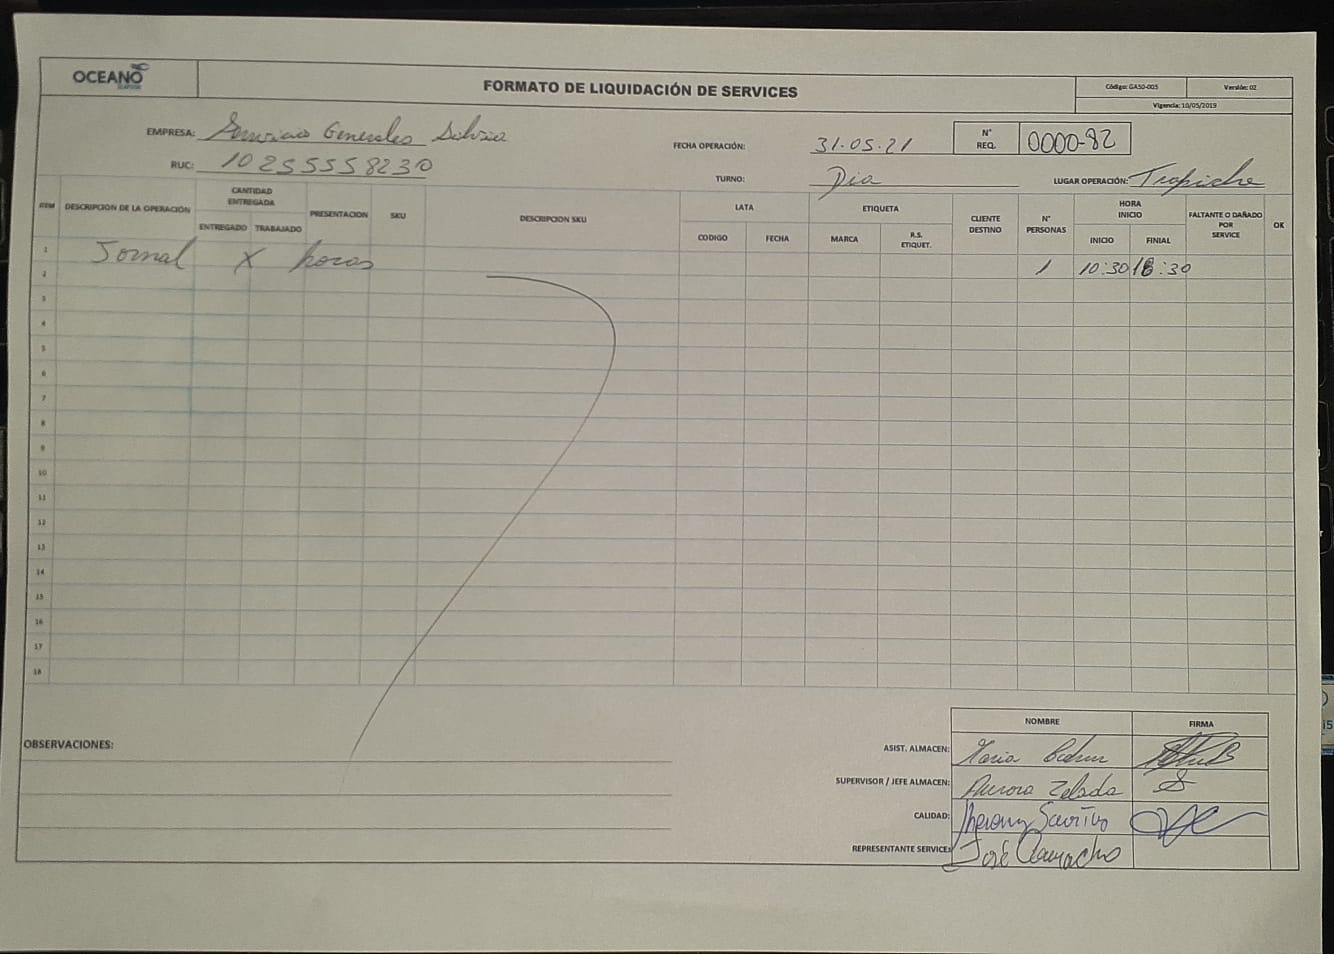 OCEANO
FORMATO DE LIQUIDACIÓN DE SERVICES
Código: GA50-005
Versión: 02
Vigencia: 10/05/2019
EMPRESA: Servicios Generales
RUC: 10255558230
FECHA OPERACIÓN: 31.05.21
N° REQ. 0000-82
TURNO: Dia
LUGAR OPERACIÓN: Trapiche
ITEM
DESCRIPCION DE LA OPERACIÓN
CANTIDAD ENTREGADA
ENTREGADO
TRABAJADO
PRESENTACION
SKU
DESCRIPCION SKU
LATA
CODIGO
FECHA
ETIQUETA
MARCA
R.S. ETIQUET.
CLIENTE DESTINO
N° PERSONAS
HORA INICIO
INICIO
FINIAL
FALTANTE O DAÑADO POR SERVICE
OK
1 Jornal X horas 1 10:30 18:30
2
3
4
5
6
7
8
9
10
11
12
13
14
15
16
17
18
OBSERVACIONES:
NOMBRE
FIRMA
ASIST. ALMACEN: Maria
SUPERVISOR / JEFE ALMACEN: Aurora Zelada
CALIDAD:
REPRESENTANTE SERVICE: José Camacho